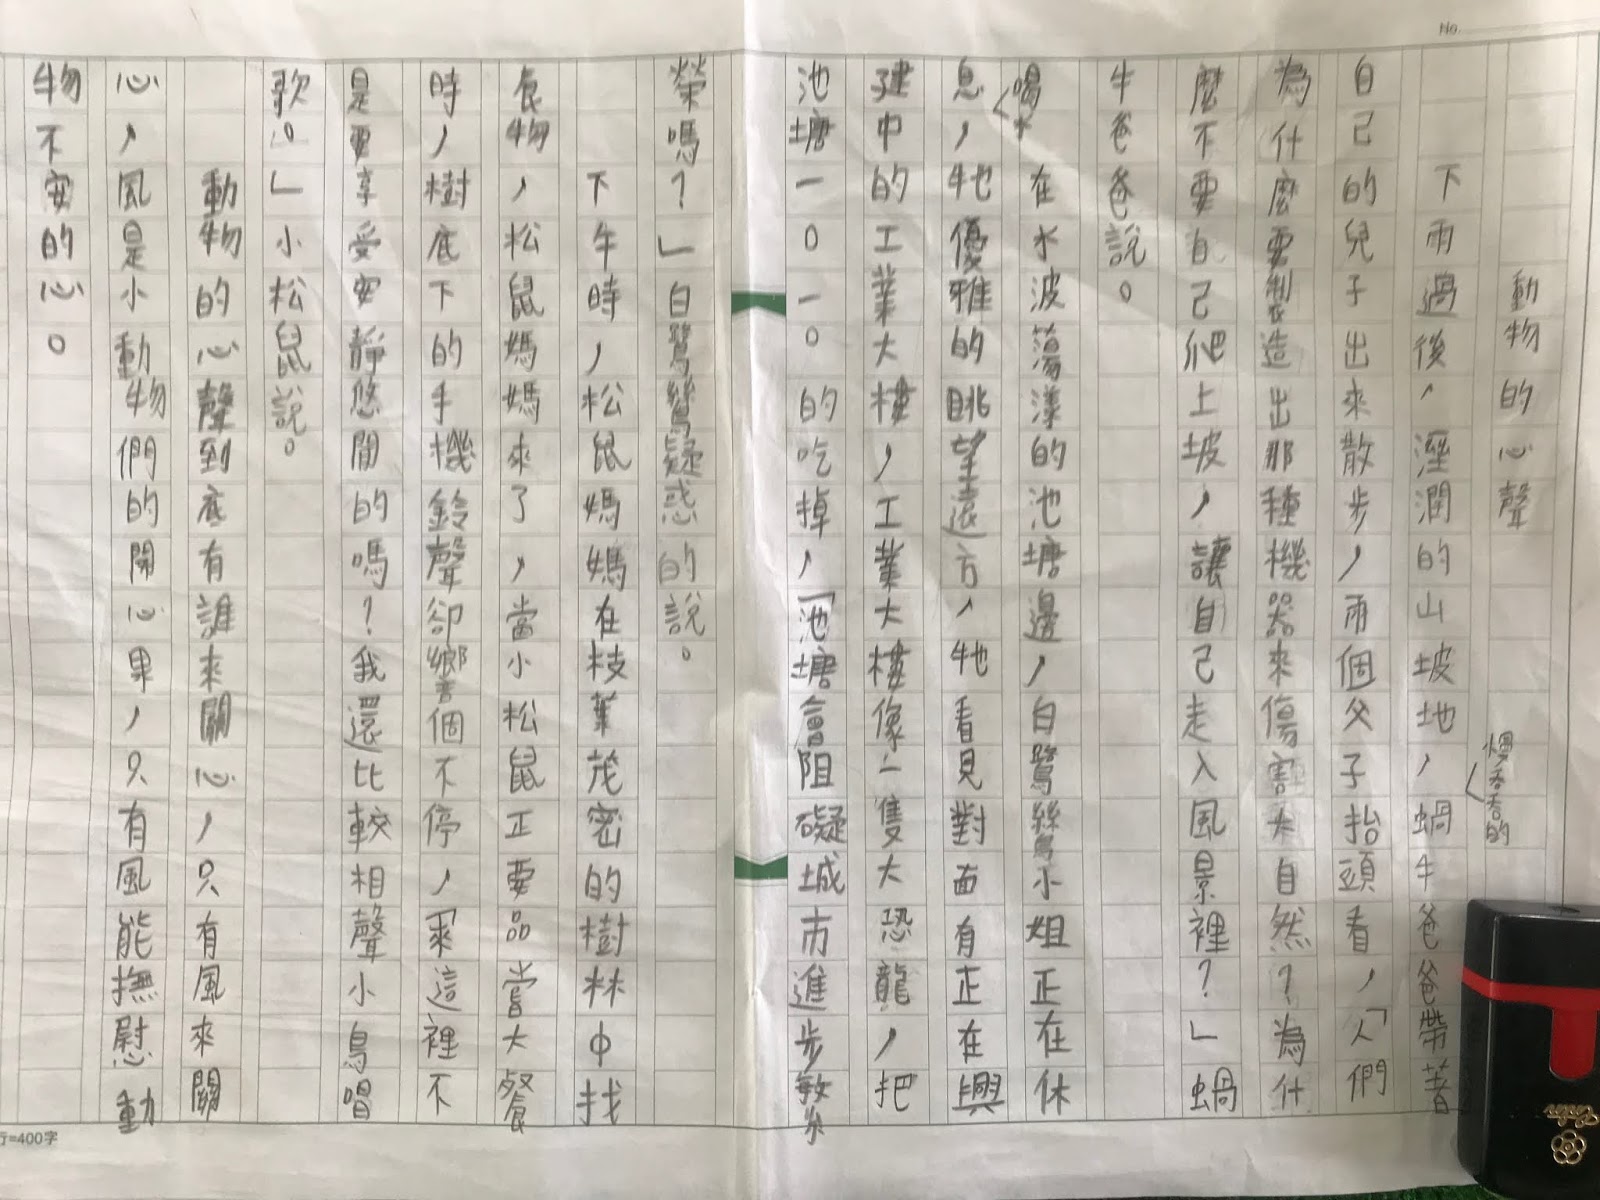 No.
動物的心聲
慢吞吞的
下雨過後，溼潤的山坡地，蝸牛爸爸帶著
自己的兒子出來散步，兩個父子抬頭看，「人們
為什麼要製造出那種機器來傷害大自然？為什
麼不要自己爬上坡，讓自己走入風景裡？」蝸
牛爸爸說。
喝水
在水波蕩漾的池塘邊，白鷺鷥小姐正在休
息，牠優雅的眺望遠方，牠看見對面有正在興
建中的工業大樓，工業大樓像一隻大恐龍，把
池塘一口一口的吃掉，「池塘會阻礙城市進步繁
榮嗎？」白鷺鷥疑惑的說。
下午時，松鼠媽媽在枝葉茂密的樹林中找
食物，松鼠媽媽來了，當小松鼠正要品嘗大餐
時，樹底下的手機鈴聲卻響個不停，「來這裡不
是要享受安靜悠閒的嗎？我還比較相聲小鳥唱
歌。」小松鼠說。
動物的心聲到底有誰來關心，只有風來關
心，風是小動物們的開心果，只有風能撫慰動
物不安的心。
行=400字